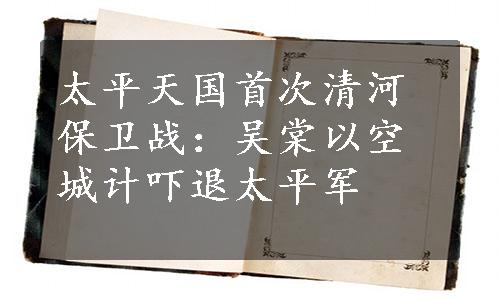 太平天国首次清河
保卫战：吴棠以空
城计吓退太平军